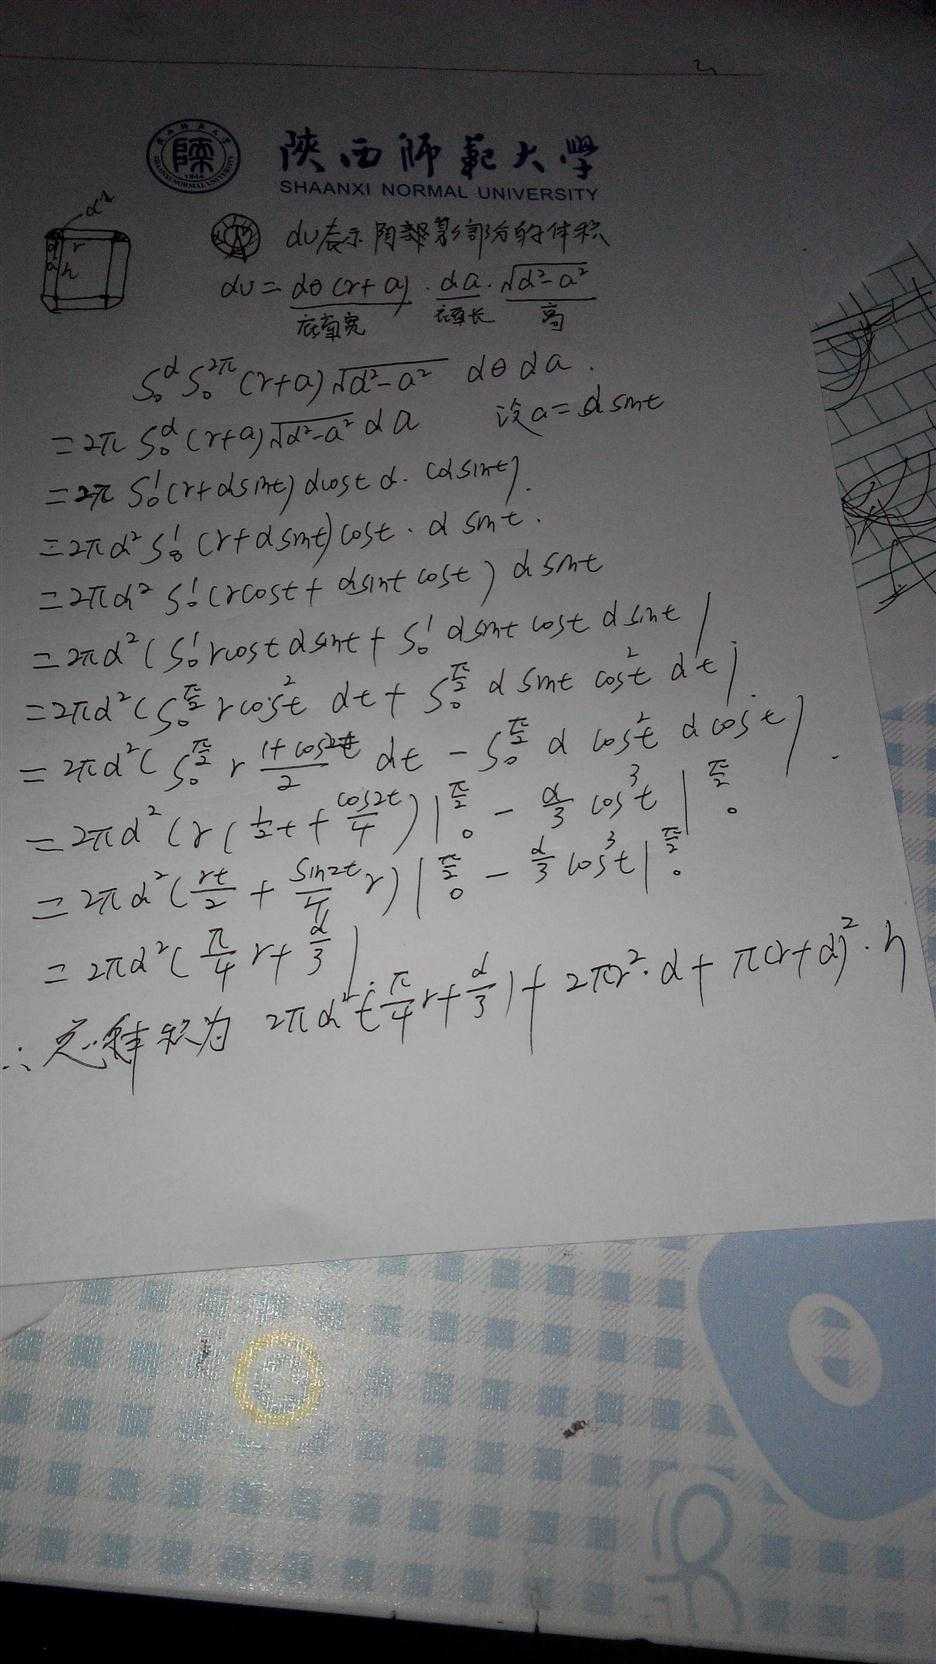 陕西师范大学
SHAANXI NORMAL UNIVERSITY
dυ表示阴影部分的体积
dυ = dθ(r+a) · da · √(α²-a²)
底面宽 底面长 高
∫₀^α ∫₀^2π (r+a) √(α²-a²) dθ da.
= 2π ∫₀^α (r+a) √(α²-a²) da 设 a = α sint
= 2π ∫₀¹ (r+α sint) α cost d·(α sint).
= 2πα² ∫₀¹ (r+α sint) cost · d sint.
= 2πα² ∫₀¹ (r cost + α sint cost) d sint
= 2πα² (∫₀¹ r cost d sint + ∫₀¹ α sint cost d sint)
= 2πα² (∫₀^(π/2) r cos²t dt + ∫₀^(π/2) α sint cos²t dt).
= 2πα² (∫₀^(π/2) r (1+cos2t)/2 dt - ∫₀^(π/2) α cos²t d cost).
= 2πα² (r (½t + cos2t/4) |₀^(π/2) - α/3 cos³t |₀^(π/2)
= 2πα² (rt/2 + sin2t/4 r) |₀^(π/2) - α/3 cos³t |₀^(π/2)
= 2πα² (π/4 r + α/3).
∴ 总体积为 2πα² (π/4 r + α/3) + 2πr²·α + π(r+α)²·h